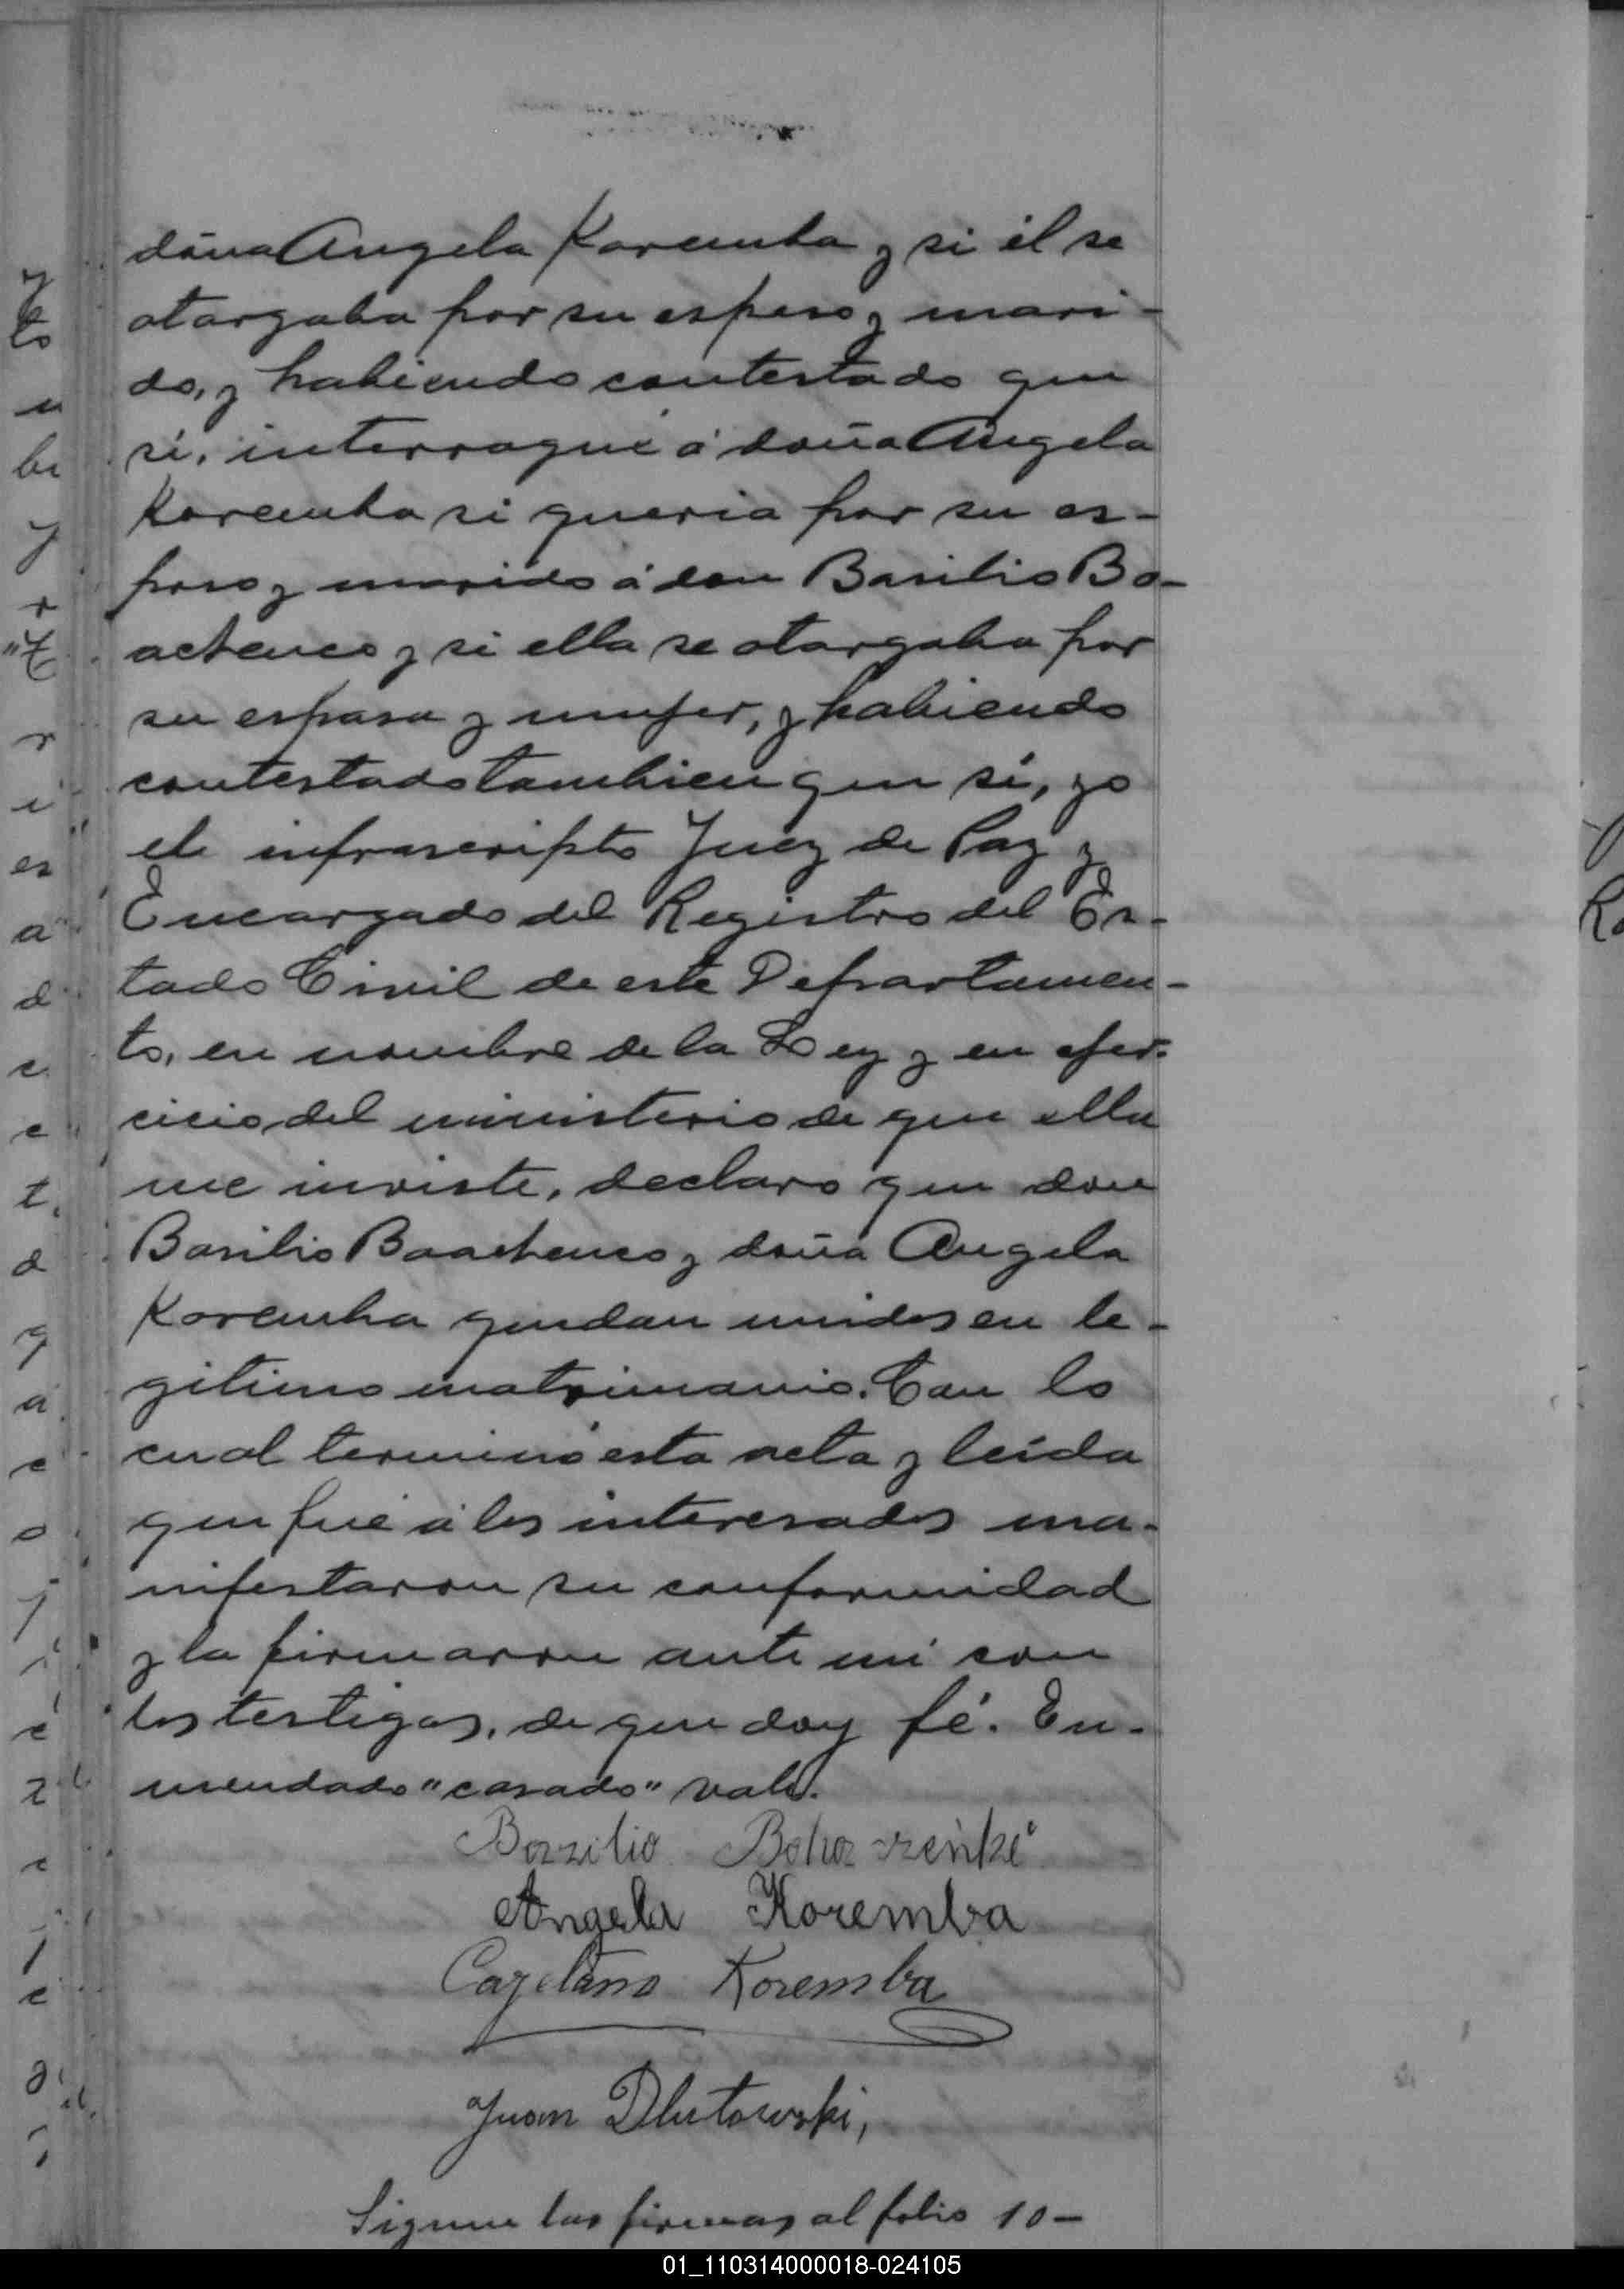 doña Angela Koremba y si él se
otorgaba por su esposo y mari-
do, y habiendo contestado que
sí, interrogué á doña Angela
Koremba si queria por su es-
poso y marido á don Basilio Bo-
actenco y si ella se otorgaba por
su esposa y mujer, y habiendo
contestado tambien que sí, yo
el infrascripto Juez de Paz y
Encargado del Registro del Es-
tado Civil de este Departamen-
to, en nombre de la Ley y en ejer-
cicio del ministerio de que ella
me inviste, declaro que don
Basilio Boactenco y doña Angela
Koremba quedan unidos en le-
gitimo matrimonio. Con lo
cual terminó esta acta y leída
que fué á los interesados ma-
nifestaron su conformidad
y la firmaron ante mí con
los testigos, de que doy fé. En-
mendado "casado" vale.
Bazilio
Angela Koremba
Cayetano Koremba
Juan Dlutowski,
Siguen las firmas al folio 10-
01_110314000018-024105